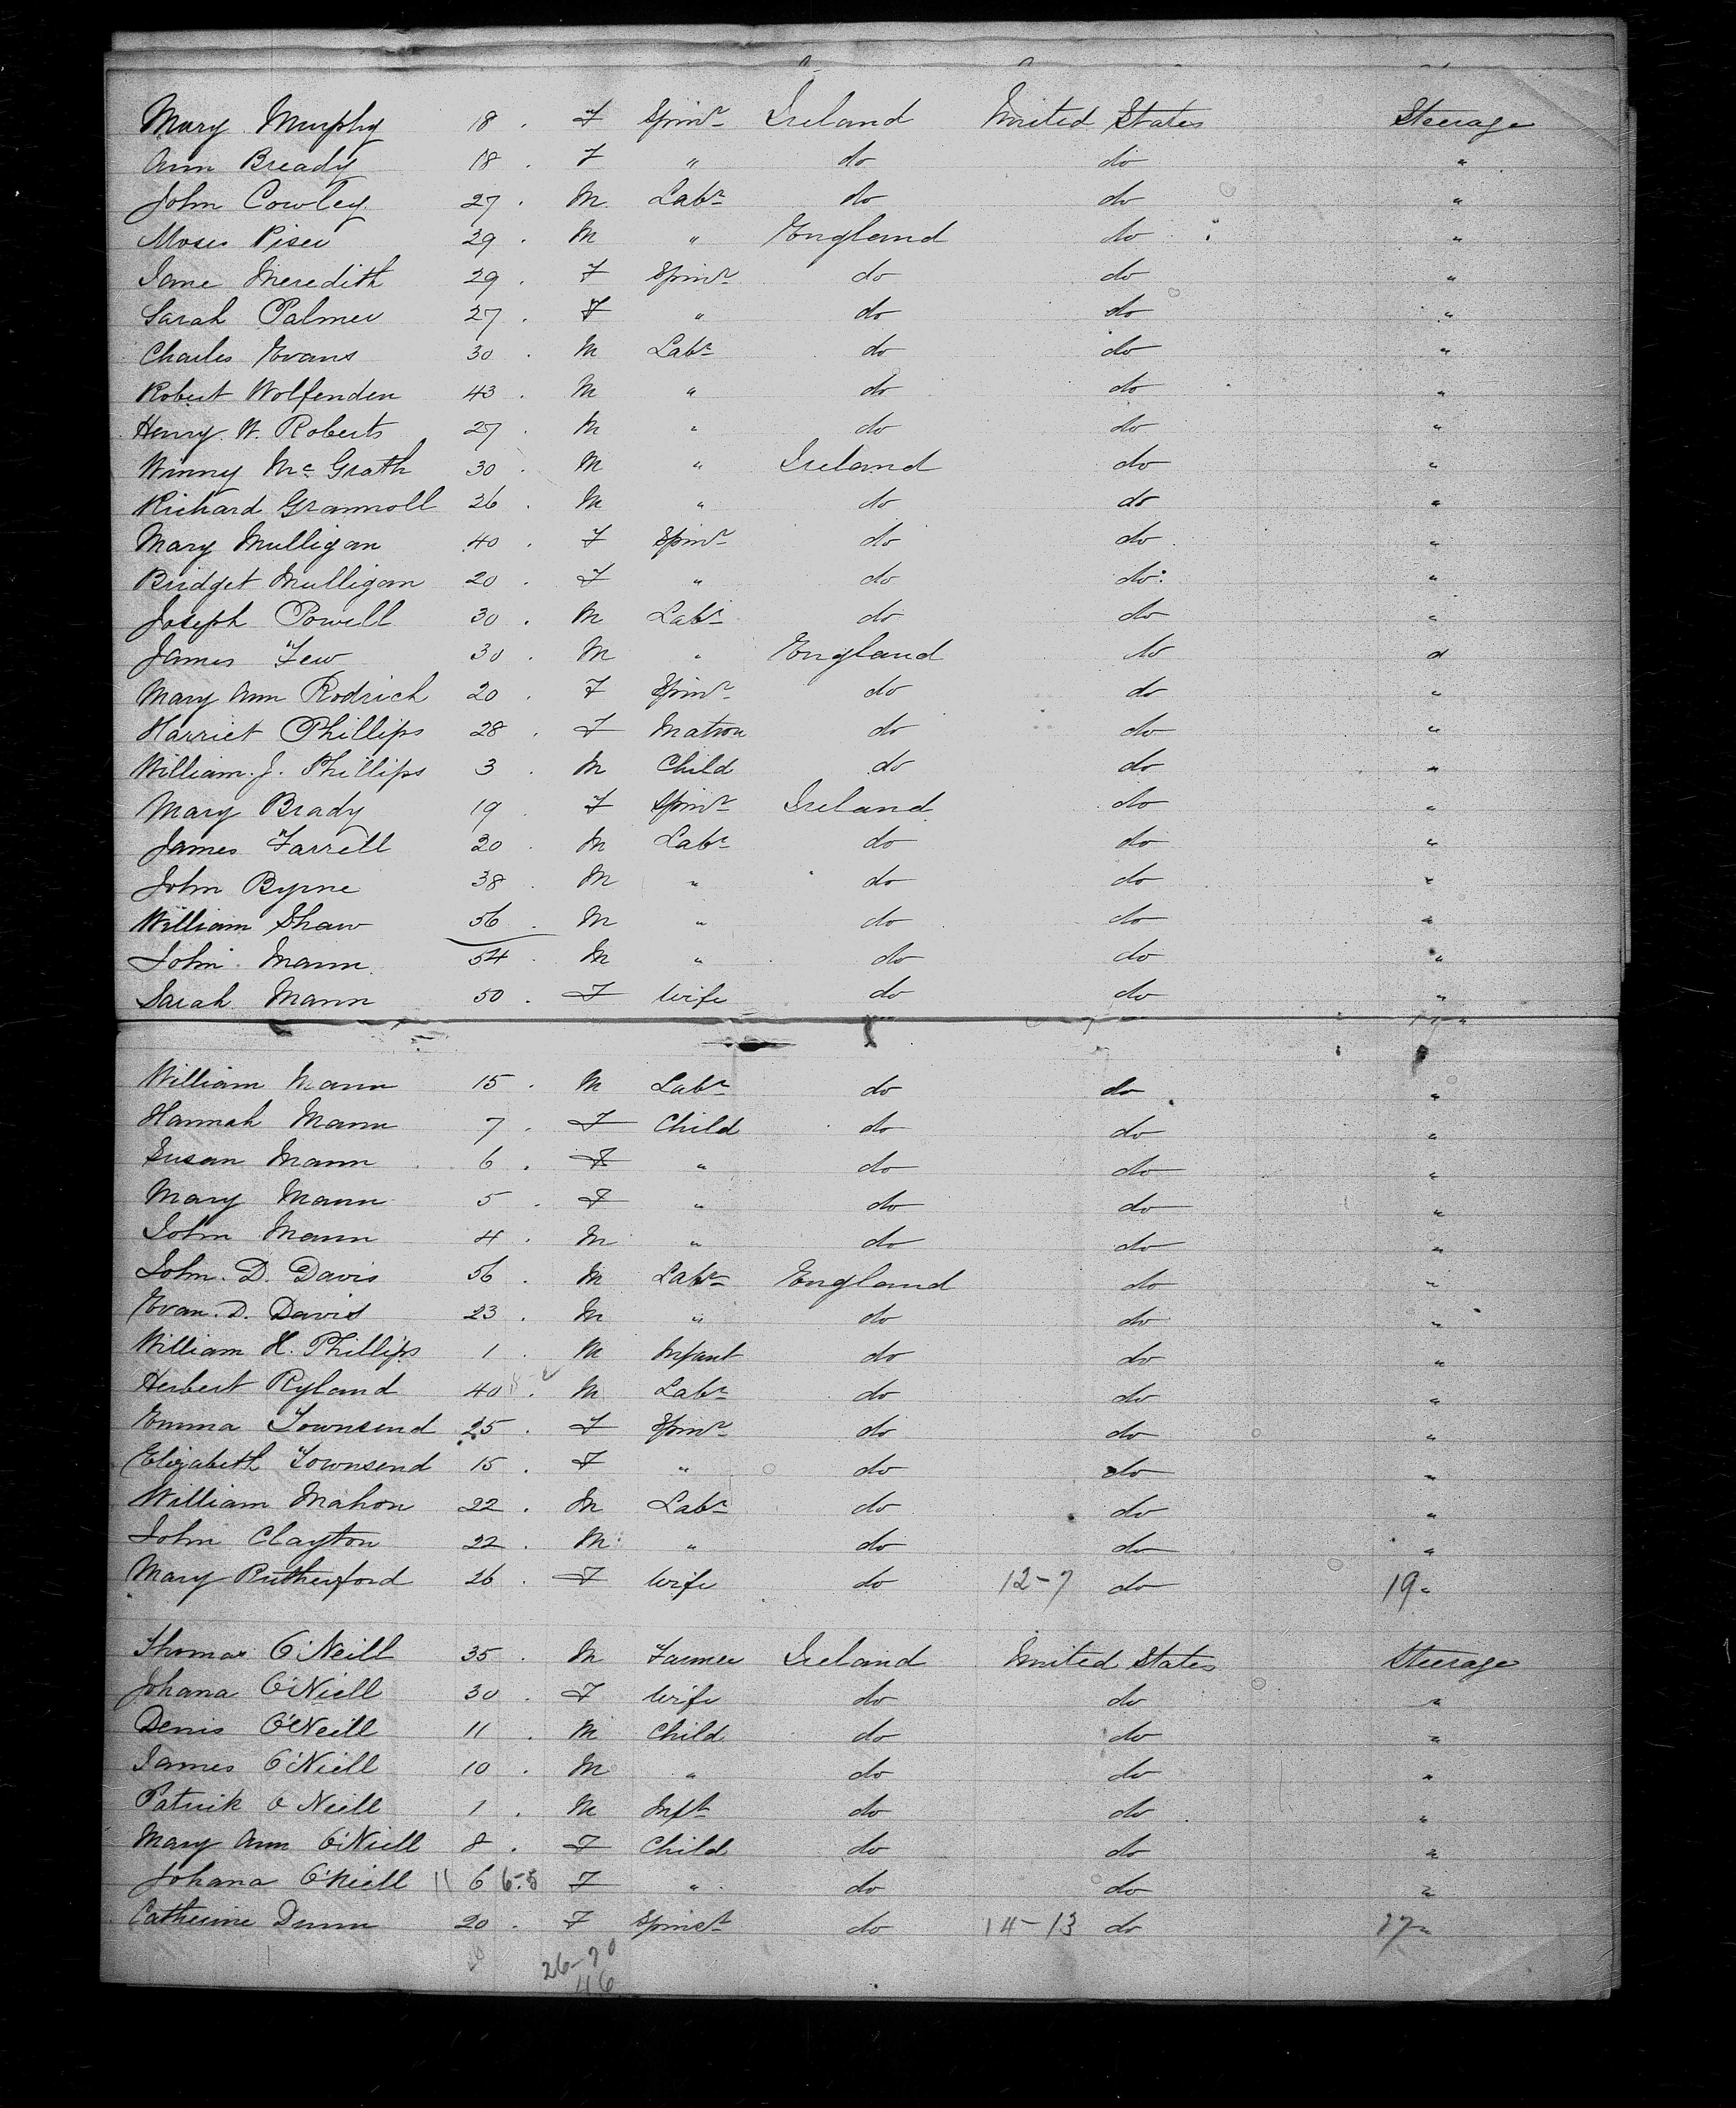 Mary Murphy 18 . F Spinr Ireland United States Steerage
Ann Bready 18 . F " do do "
John Cowley 27 . M Labr do do "
Moses Piser 29 . M " England do "
Jane Meredith 29 . F Spinr do do "
Sarah Palmer 27 . F " do do "
Charles Evans 30 . M Labr do do "
Robert Wolfenden 43 . M " do do "
Henry W. Roberts 27 . M " do do "
Winny McGrath 30 . M " Ireland do "
Richard Grannoll 26 . M " do do "
Mary Mulligan 40 . F Spinr do do "
Bridget Mulligan 20 . F " do do "
Joseph Powell 30 . M Labr do do "
James Few 30 . M " England do "
Mary Ann Rodrich 20 . F Spinr do do "
Harriet Phillips 28 . F Matron do do "
William. J. Phillips 3 . M Child do do "
Mary Brady 19 F Spinr Ireland do "
James Farrell 20 . M Labr do do "
John Byrne 38 . M " do do "
William Shaw 56 . M " do do "
John Mann 54 . M " do do "
Sarah Mann 50 . F Wife do do "
William Mann 15 . M Labr do do "
Hannah Mann 7 . F Child do do "
Susan Mann 6 . F " do do "
Mary Mann 5 . F " do do "
John Mann 4 . M " do do "
John. D. Davis 56 . M Labr England do "
Evan. D. Davis 23 . M " do do "
William H. Phillips 1 . M Infant do do "
Herbert Ryland 40 . M Labr do do "
Emma Townsend 25 . F Spinr do do "
Elizabeth Townsend 15 . F " do do "
William Mahon 22 . M Labr do do "
John Clayton 22 . M " do do "
Mary Rutherford 26 . F Wife do 12-7 do 19 "
Thomas O'Neill 35 . M Farmer Ireland United States Steerage
Johana O'Niell 30 . F Wife do do "
Denis O'Neill 11 . M Child do do "
James O'Niell 10 . M " do do "
Patrik O Neill 1 . M Inft do do "
Mary Ann O'Niell 8 . F Child do do "
Johana O'Neill 11 6 6-5 F " do do "
Catherine Dunn 20 . F Spinst do 14-13 do 27 "
26-20
46